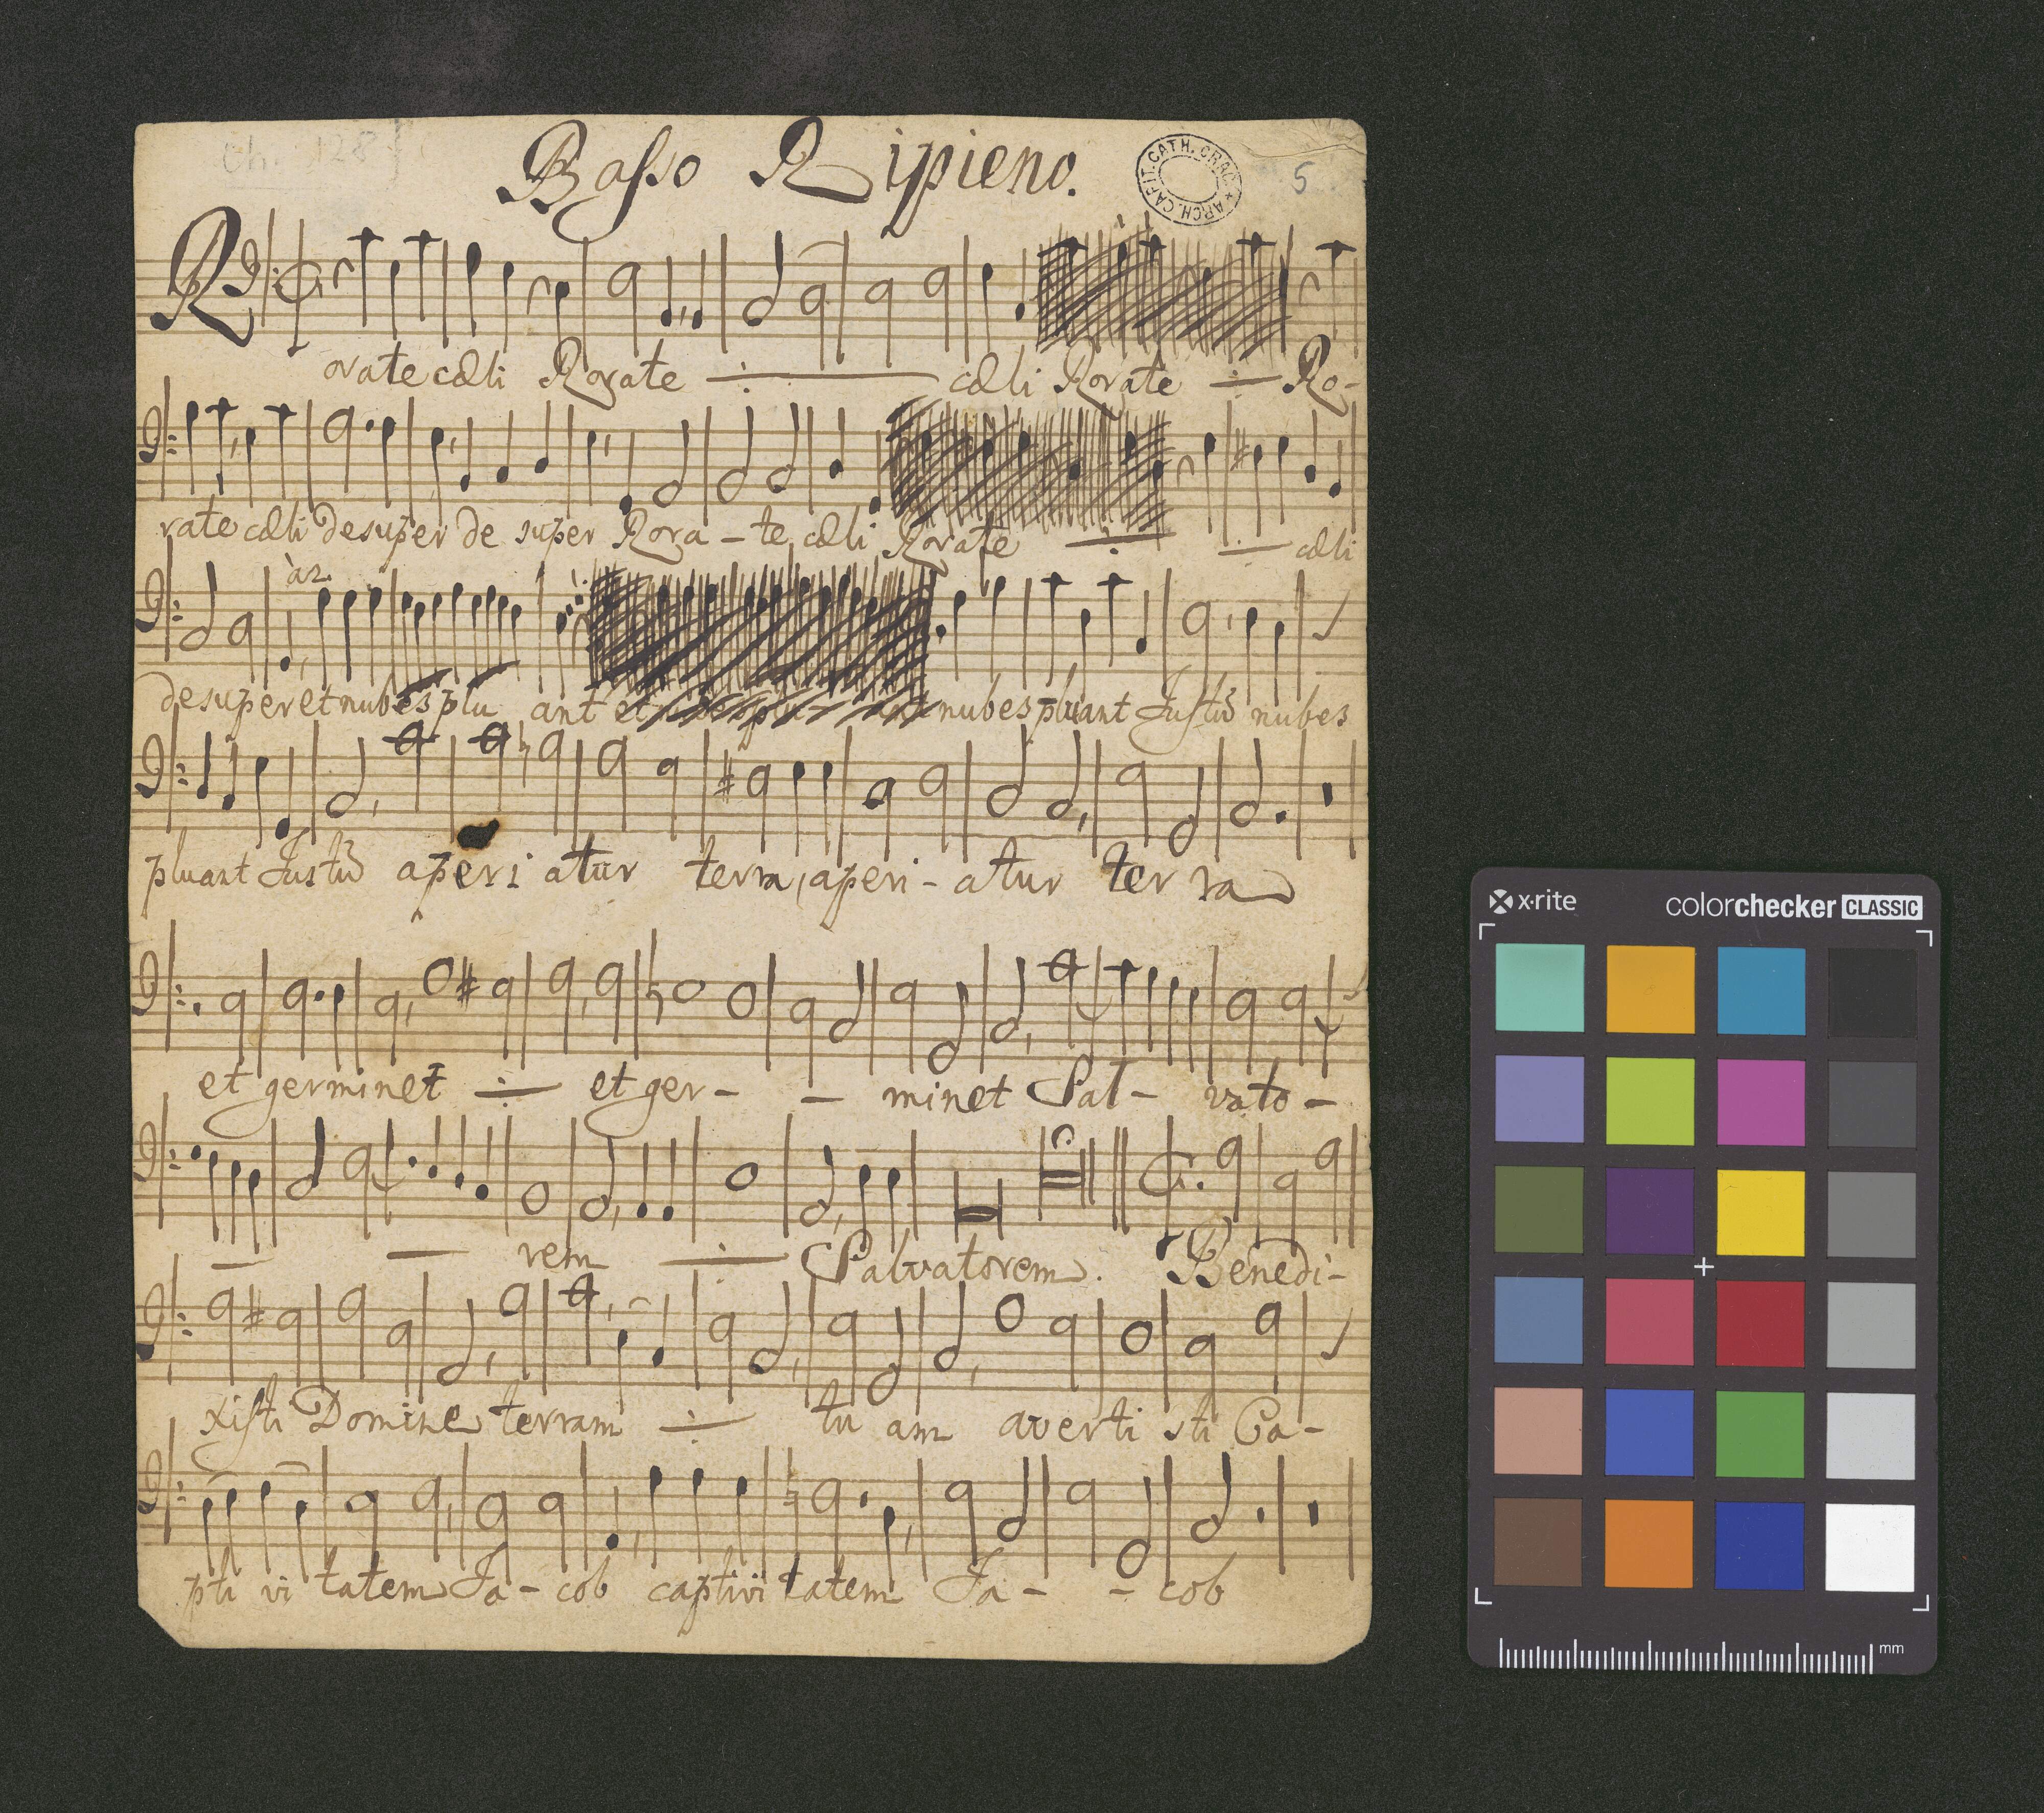 Ch. 128
Basso Ripieno.
ARCH. CAPIT. CATH. CRAC.
5
Rorate cæli Rorate ÷ cæli Rorate ÷ Ro-
rate cæli desuper de super Rora-te cæli Rorate ÷ ÷ cæli
à2.
desuper et nubes plu ant et nubes pluant Justũ nubes
pluant Justũ aperi atur terra, aperi-atur ter ra
et germinet ÷ et ger- - minet Sal- vato-
- - rem ÷ Salvatorem. Benedi-
xisti Domine terram ÷ tu am averti sti Ca-
pti vi tatem Ja-cob captivi tatem Ja- -cob
x·rite colorchecker CLASSIC
mm